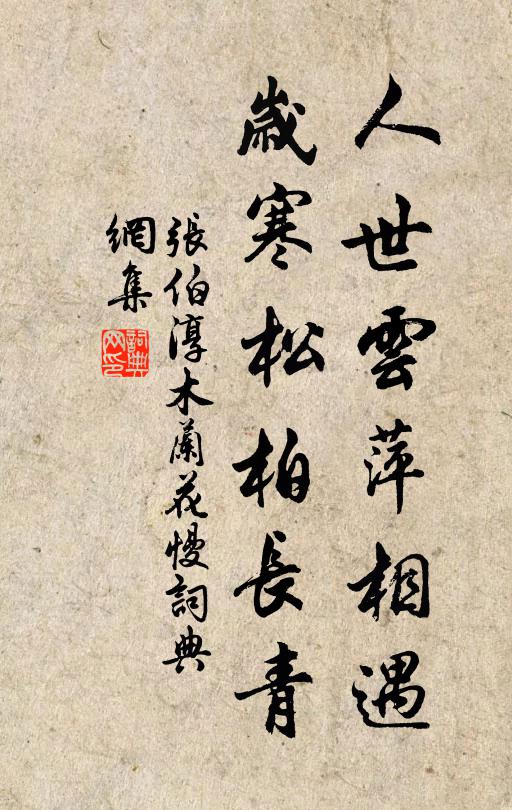 人世雲萍相遇
歲寒松柏長青
張伯淳木蘭花慢詞典
網集
詞典
网印